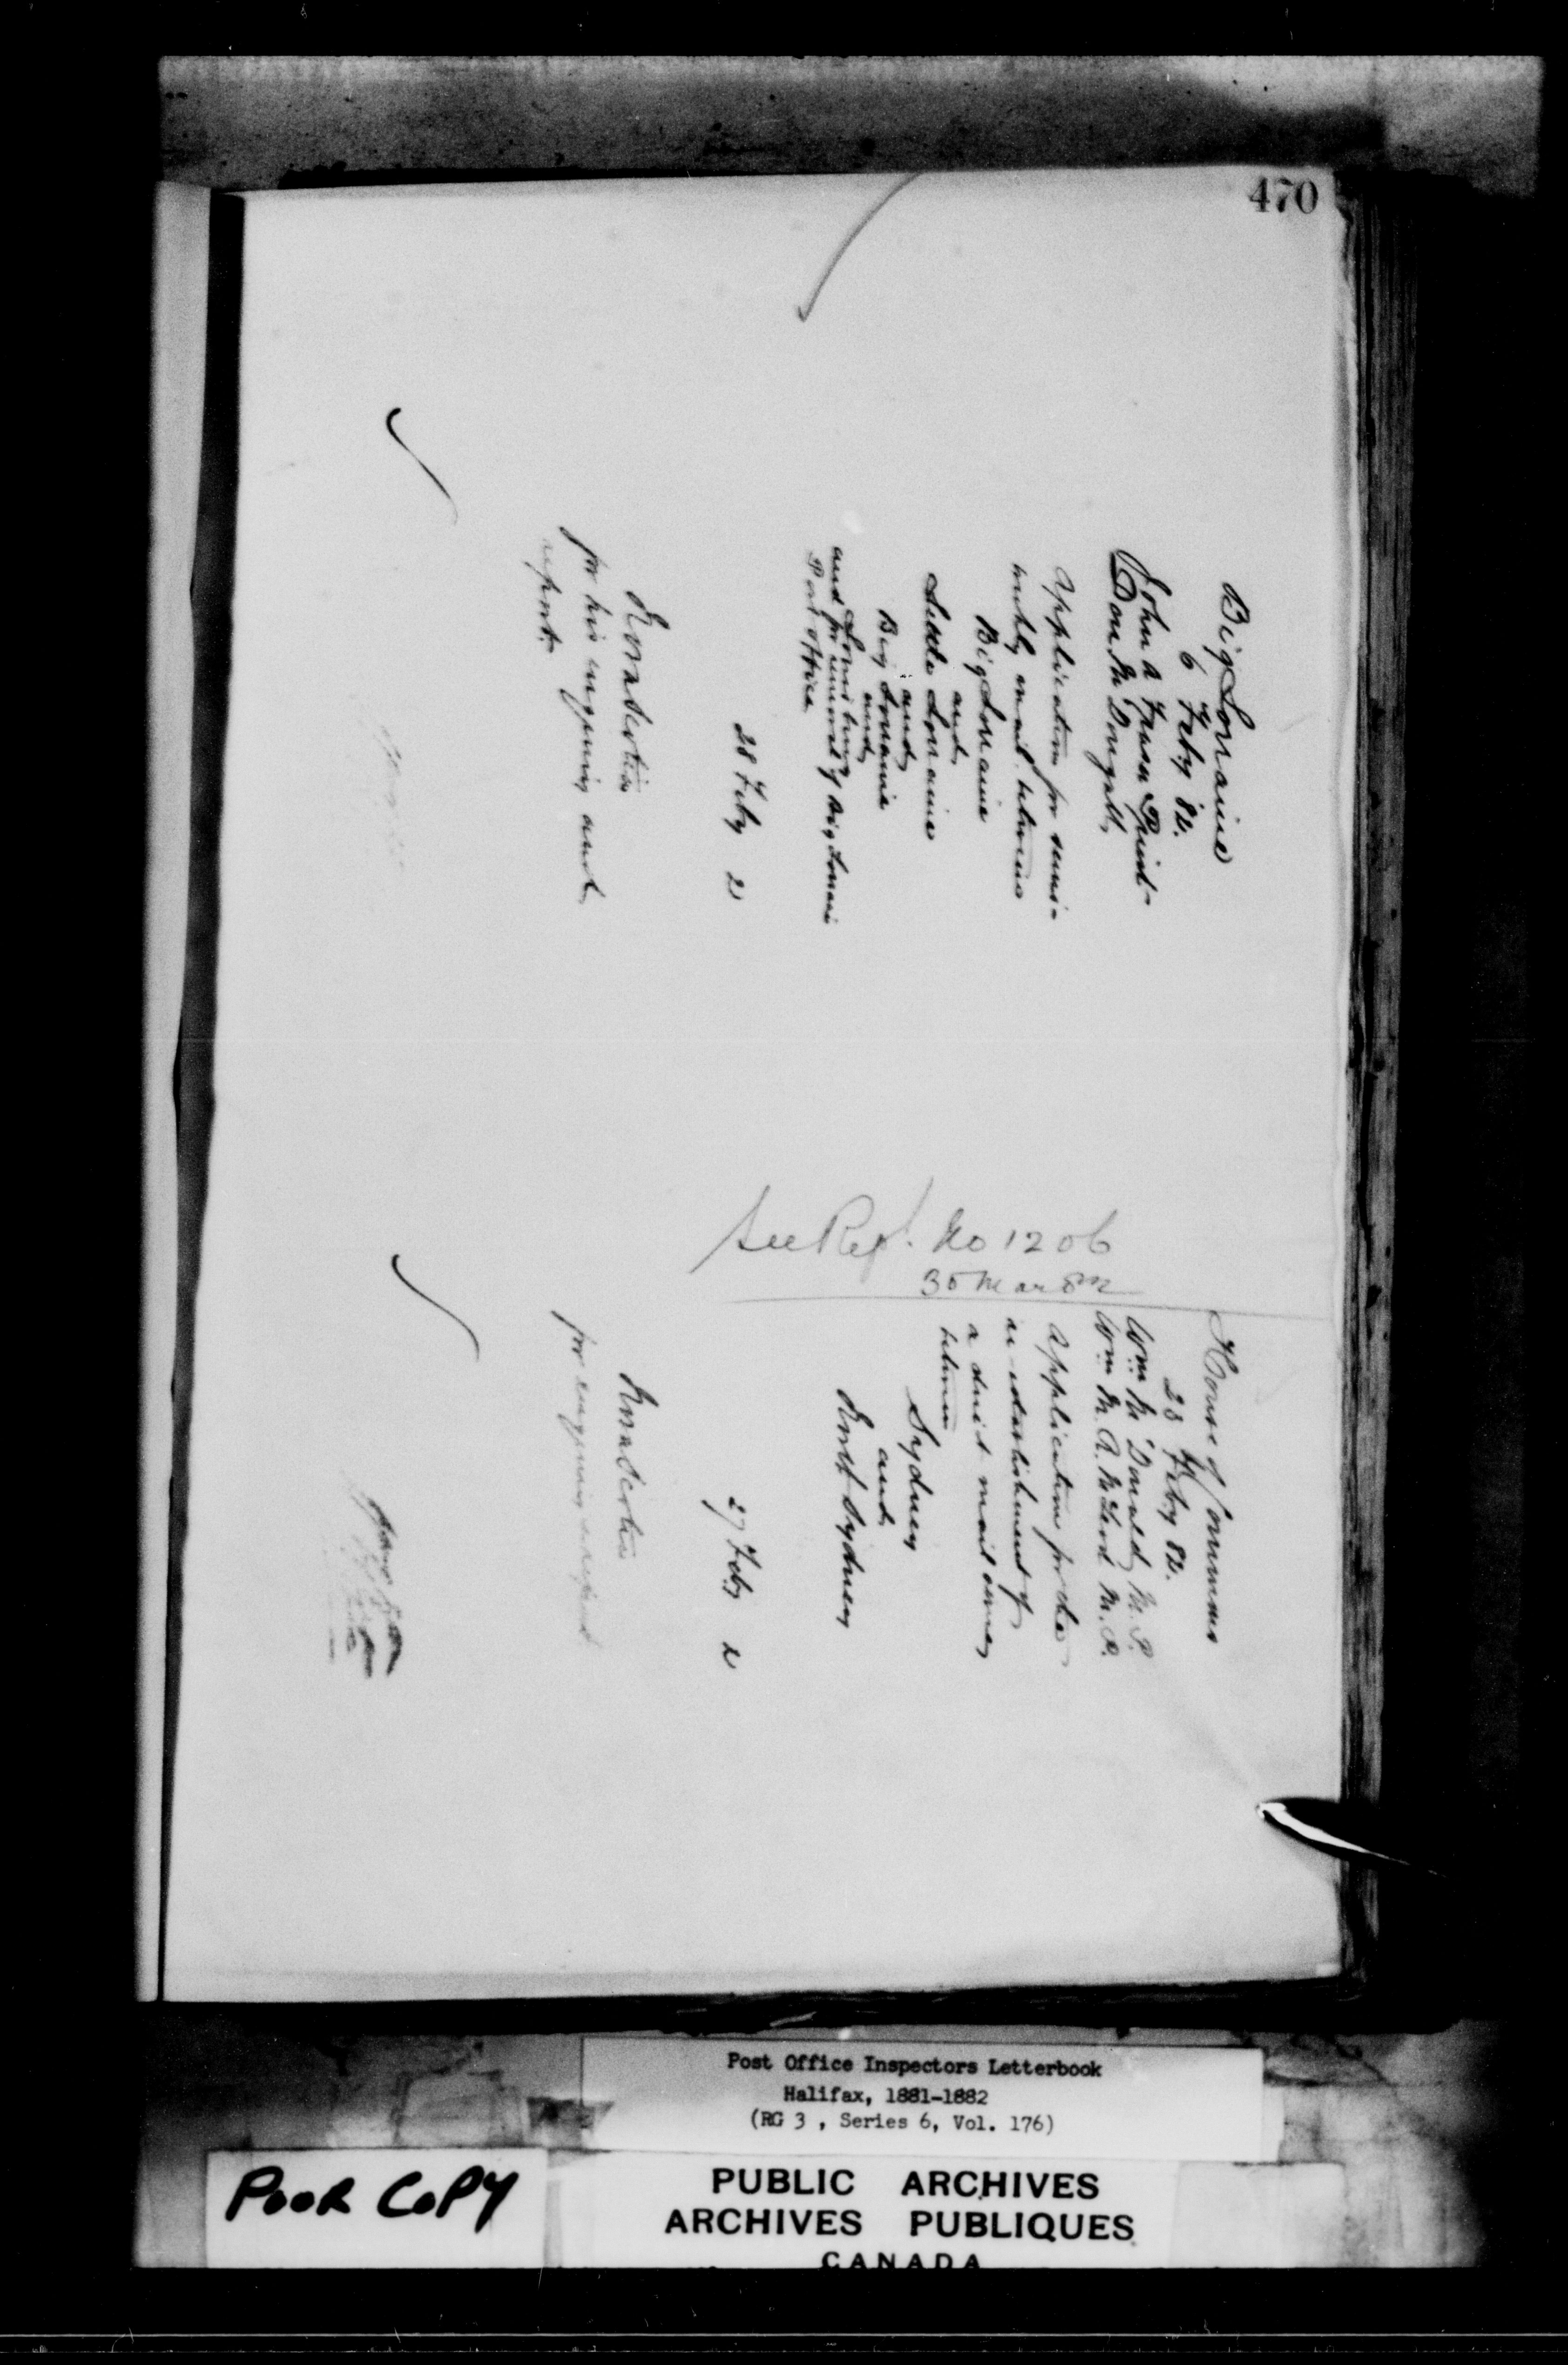 470
Big Lorraine
6 Feby 82.
John A Fraser Priest
Don McDougall,
Application for semi-
weekly mail between
Big Lorraine
and
Little Lorraine
and
Big Lorraine
and
Louisburg
and for removal of Big Lorraine
Post Office
28 Feby 2
for his enquiry and
report.
See Rep. No 1206
30 Mar 82
House of Commons
23 Feby 82.
Wm McDonald, M.P.
Wm M. McLeod M.P.
Application for the
re-establishment of
a direct mail service
between
Sydney
and
North Sydney
27 Feby 2
for enquiry & report
Post Office Inspectors Letterbook
Halifax, 1881-1882
(RG 3 , Series 6, Vol. 176)
POOR COPY
PUBLIC ARCHIVES
ARCHIVES PUBLIQUES
CANADA